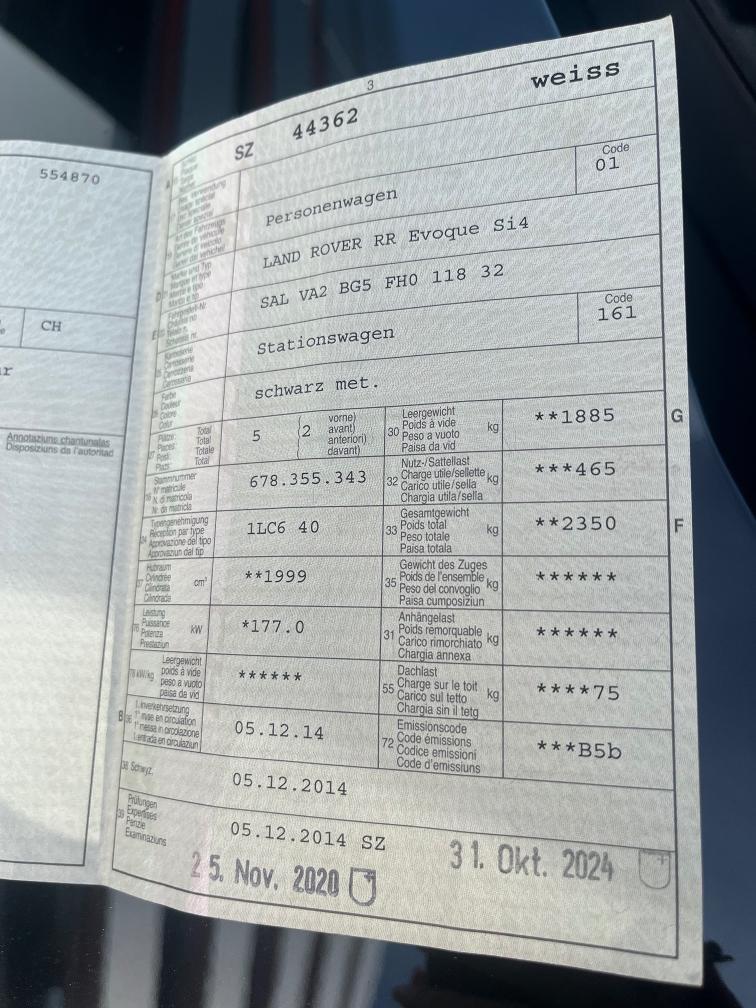 3
554870
CH
Annotaziuns chantunalas
Disposiziuns da l'autoritad
SZ 44362 weiss
Personenwagen
Code
01
LAND ROVER RR Evoque Si4
SAL VA2 BG5 FH0 118 32
Stationswagen
Code
161
Farbe
Couleur
Colore
Color
schwarz met.
Total
Total
Totale
Total
5
(2
vorne)
avant)
anteriori)
davant)
30
Leergewicht
Poids à vide
Peso a vuoto
Paisa da vid
kg
**1885
G
Stammnummer
N° matricule
N. di matricola
Nr. da matricla
678.355.343
32
Nutz-/Sattellast
Charge utile/sellette
Carico utile/sella
Chargia utila/sella
kg
***465
Typengenehmigung
Réception par type
Approvazione del tipo
Approvaziun dal tip
1LC6 40
33
Gesamtgewicht
Poids total
Peso totale
Paisa totala
kg
**2350
F
Hubraum
Cylindrée
Cilindrata
Cilindrada
cm³
**1999
35
Gewicht des Zuges
Poids de l'ensemble
Peso del convoglio
Paisa cumposiziun
kg
******
Leistung
Puissance
Potenza
Prestaziun
kW
*177.0
31
Anhängelast
Poids remorquable
Carico rimorchiato
Chargia annexa
kg
******
Leergewicht
poids à vide
peso a vuoto
paisa da vid
******
55
Dachlast
Charge sur le toit
Carico sul tetto
Chargia sin il tetg
kg
****75
B
36
1. Inverkehrsetzung
1re mise en circulation
1a messa in circolazione
1. entrada en circulaziun
05.12.14
72
Emissionscode
Code émissions
Codice emissioni
Code d'emissiuns
***B5b
38 Schwyz,
05.12.2014
39
Prüfungen
Expertises
Perizie
Examinaziuns
05.12.2014 SZ
25. Nov. 2020
31. Okt. 2024